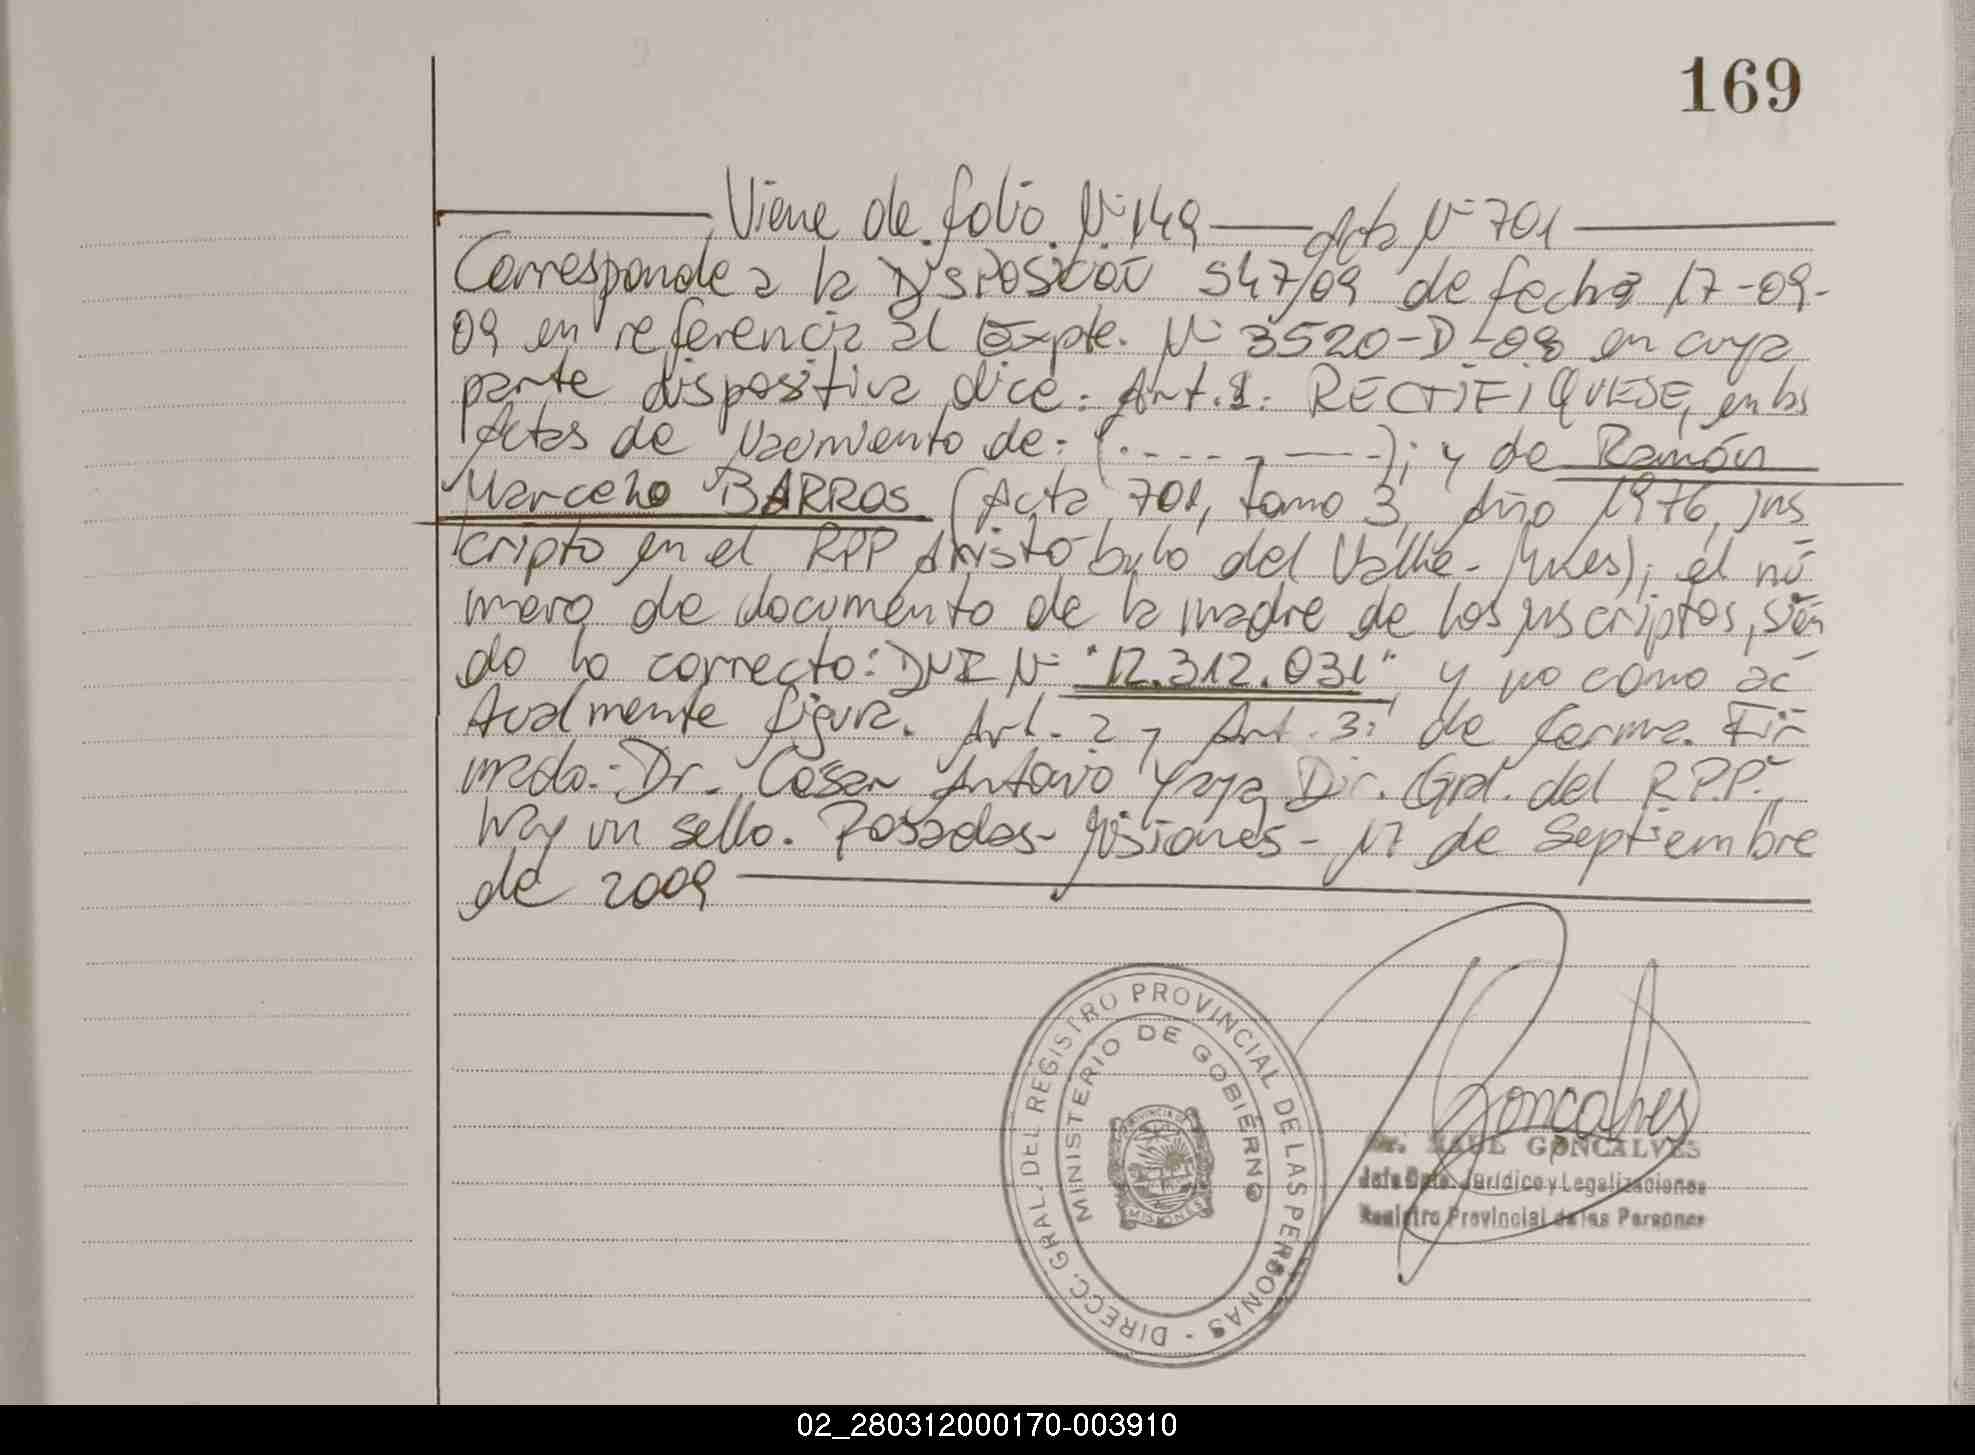 169
Viene de folio N° 149 — Acta N° 701
Corresponde a la Disposición 547/09 de fecha 17-09-
09 en referencia al Expte. N° 3520-D-08 en cuya
parte dispositiva dice: Art. 1: RECTIFIQUESE, en las
Actas de Nacimiento de: (.----,----); y de Ramón
Marcelo BARROS (Acta 701, tomo 3, Año 1976, ins
cripto en el RPP Aristóbulo del Valle - Mnes); el nú
mero de documento de la madre de los inscriptos, sien
do lo correcto: DNI N° "12.312.031", y no como ac
tualmente figura. Art. 2 y Art. 3: de forma. Fir
mado: Dr. César Antonio Yaya Dir. Gral. del R.P.P.
hay un sello. Posadas - Misiones - 17 de Septiembre
de 2009
DIRECC. GRAL. DEL REGISTRO PROVINCIAL DE LAS PERSONAS -
MINISTERIO DE GOBIERNO
PROVINCIA DE
MISIONES
Goncalves
Dr. RAUL GONCALVES
Jefe Dpto. Jurídico y Legalizaciones
Registro Provincial de las Personas
02_280312000170-003910